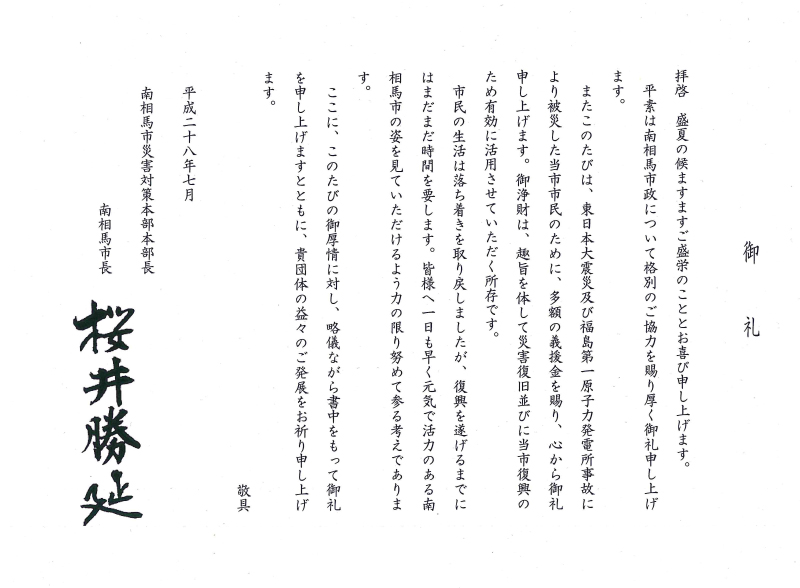 御礼
拝啓　盛夏の候ますますご盛栄のこととお喜び申し上げます。
平素は南相馬市政について格別のご協力を賜り厚く御礼申し上げ
ます。
またこのたびは、東日本大震災及び福島第一原子力発電所事故に
より被災した当市市民のために、多額の義援金を賜り、心から御礼
申し上げます。御浄財は、趣旨を体して災害復旧並びに当市復興の
ため有効に活用させていただく所存です。
市民の生活は落ち着きを取り戻しましたが、復興を遂げるまでに
はまだまだ時間を要します。皆様へ一日も早く元気で活力のある南
相馬市の姿を見ていただけるよう力の限り努めて参る考えでありま
す。
ここに、このたびの御厚情に対し、略儀ながら書中をもって御礼
を申し上げますとともに、貴団体の益々のご発展をお祈り申し上げ
ます。
敬具
平成二十八年七月
南相馬市災害対策本部本部長
南相馬市長
桜井勝延